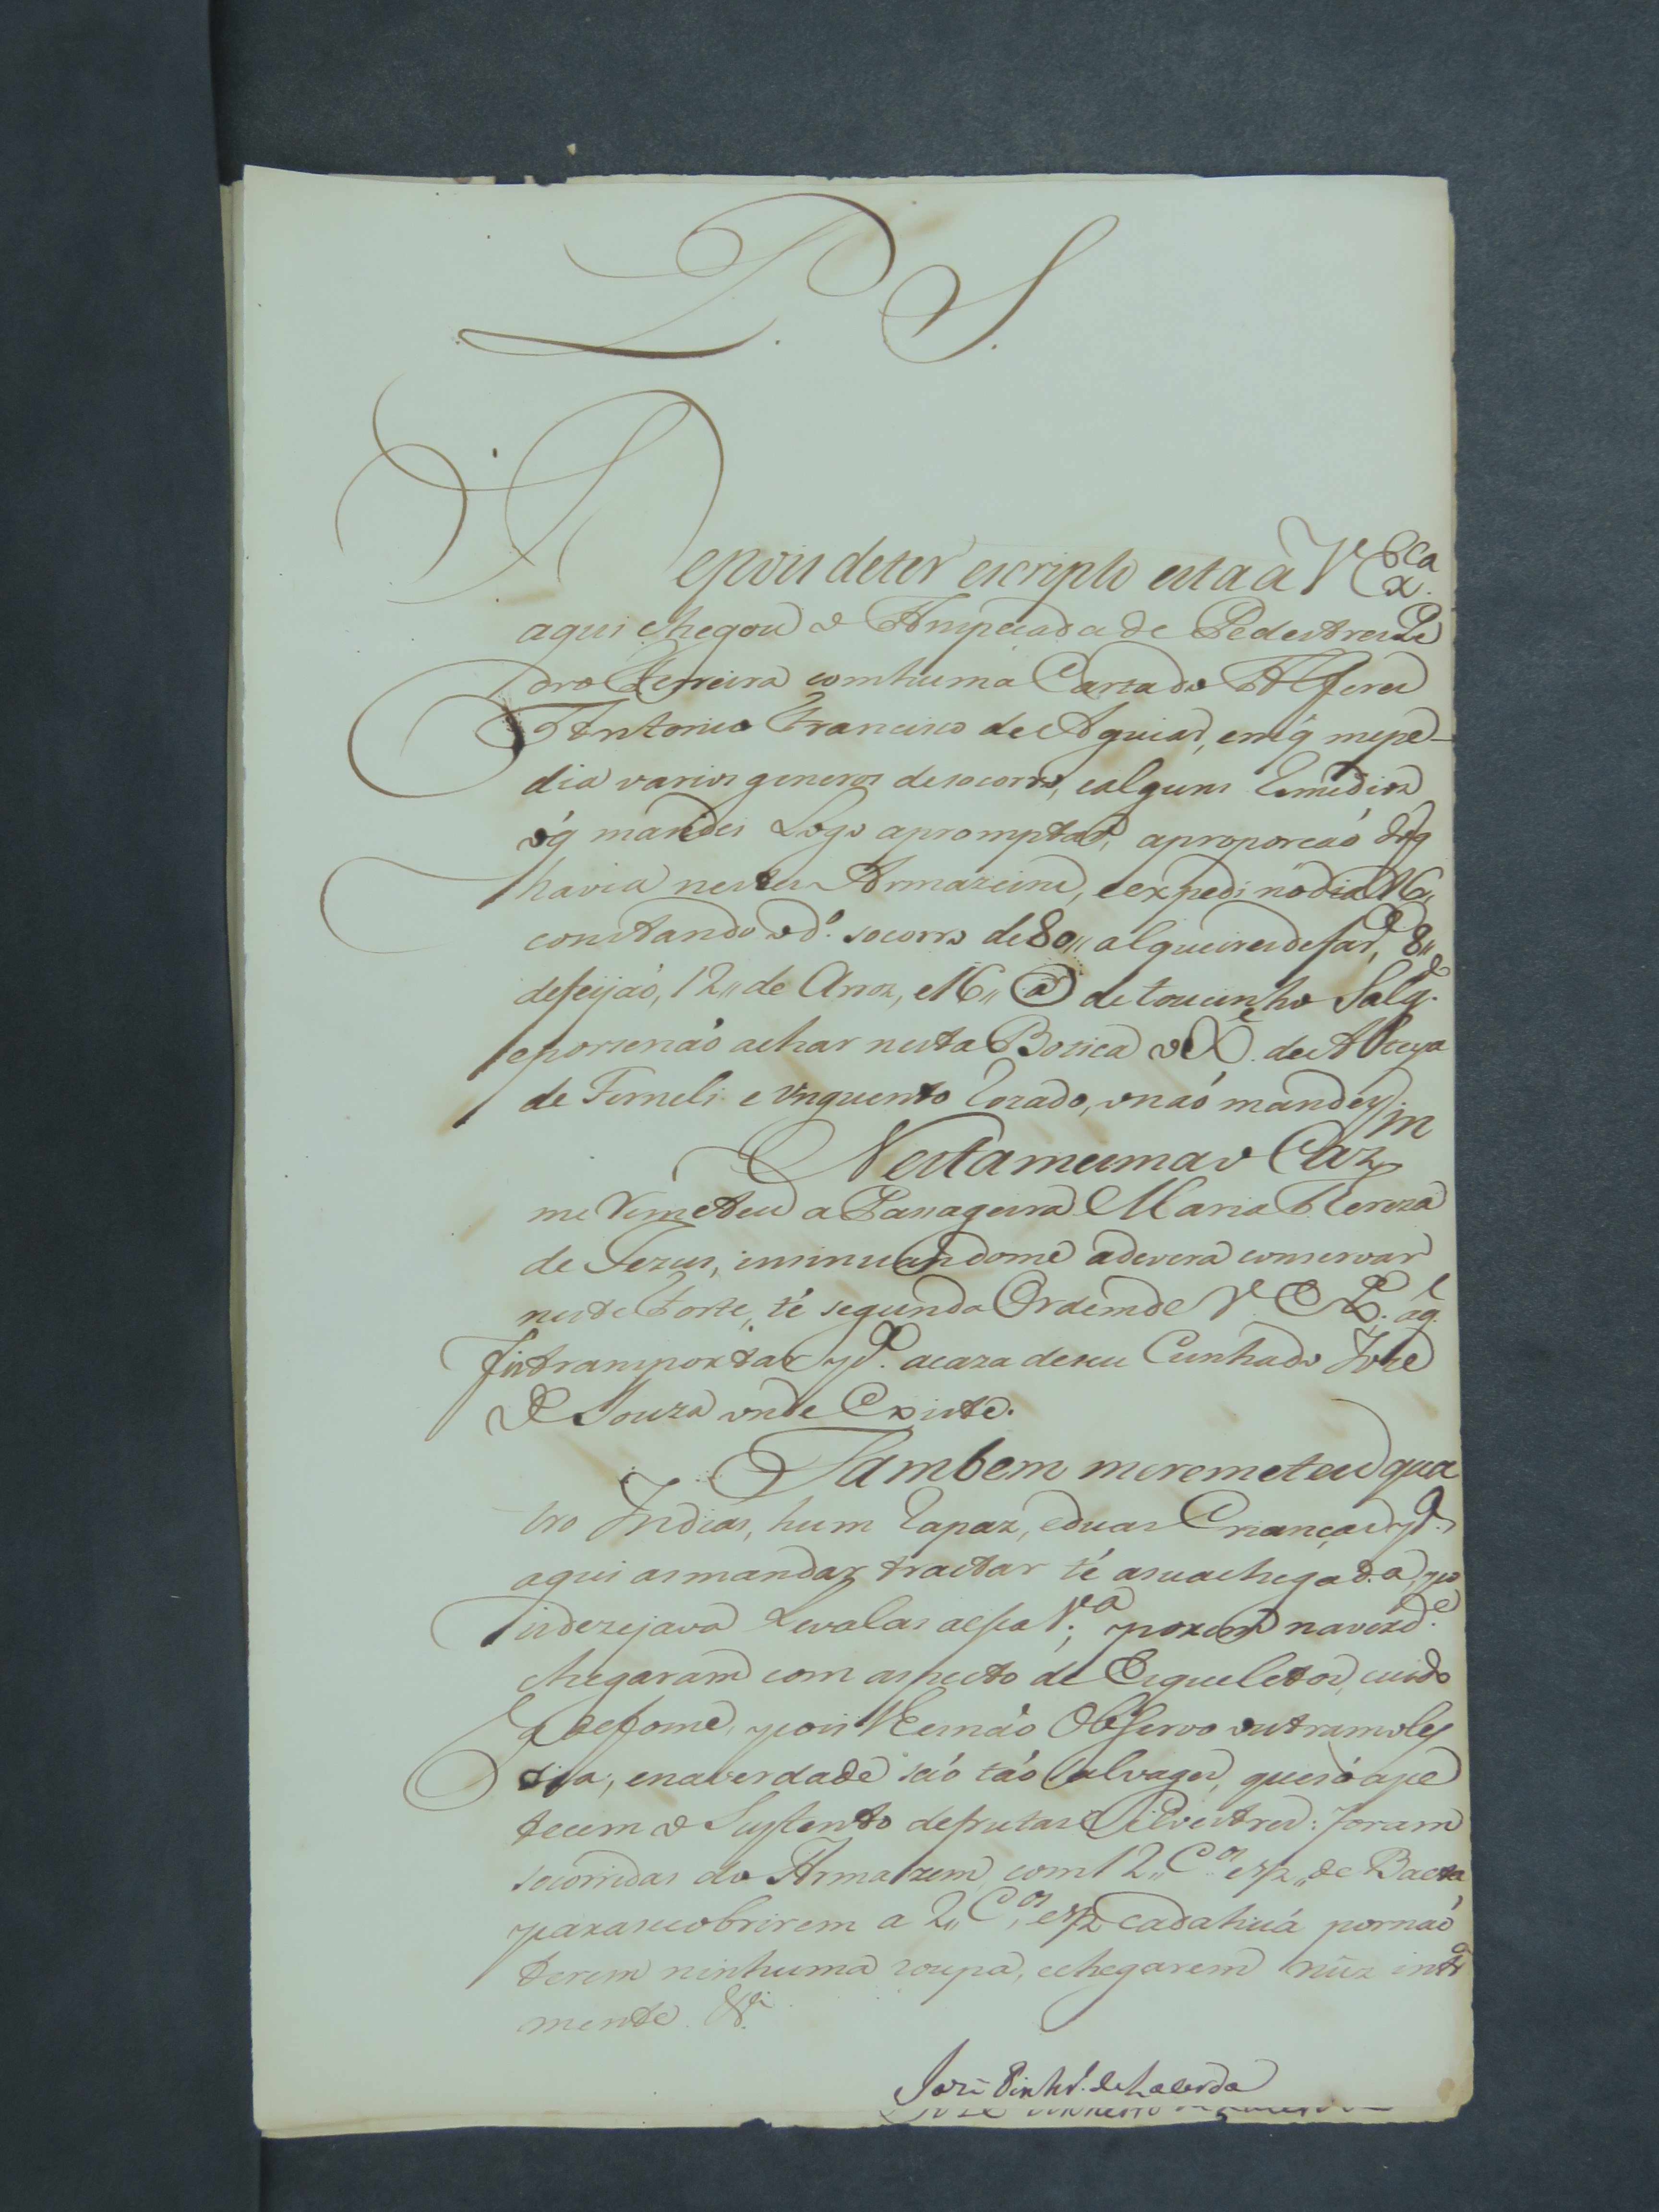 P. S.
Depois deter escripto esta a V Ex.ca
aqui chegou o Anspeciada de Pedestres Pe
dro Ferreira comhuma Carta do Alferes
Antonio Francisco de Aguiar, emq̃ mepe-
dia varios generos desocorro, ealguns Remedios
oq̃ mandei Logo apromptar, aproporcaõ doq̃
havia nestes Armazeins, eexpedi nodia 16,,
constando od.º socorro de 80,, alqueires defar.ª, 8,,
defeijaõ, 12,, de Arroz, e 16,, @ de toucinho Salg.do
eporsenaõ achar nesta Botica o X.e de Alteya
de Ferneli e Unguento Rozado, onaõ mandey.
Nestamesma o Caz.m
me Remeteu a Passageira Maria Thereza
de Jezus, insinuandome adevera conservar
neste Forte, té segunda Ordemde V. Ex.ª, aq̃
fis transportar p.ª acaza deseu Cunhado Joze
de Souza onde Existe.
Tambem meremeteu qua
tro Indias, hum Rapaz, eduas Crianças p.ª
aqui asmandar tractar té asuachegada, po
isdezejava Levalas aessa V.ª; porem naverd.e
chegaram com aspecto de Esqueletos, cuido
q̃ defome, pois lhesnaõ Observo outramoles
tia; enaverdade saõ taõ salvages, quesó ape
tecem o Sustento defrutas Silvestres: foram
socorridas do Armazem com 12,, C.os e 1/2,, de Baeta
parasecobrirem a 2,, C.os, e 1/2 cadahuá pornaõ
terem ninhuma roupa, echegarem nûz intr.ª
mente. &.ª
Jozé Pinhr.º de Lacerda